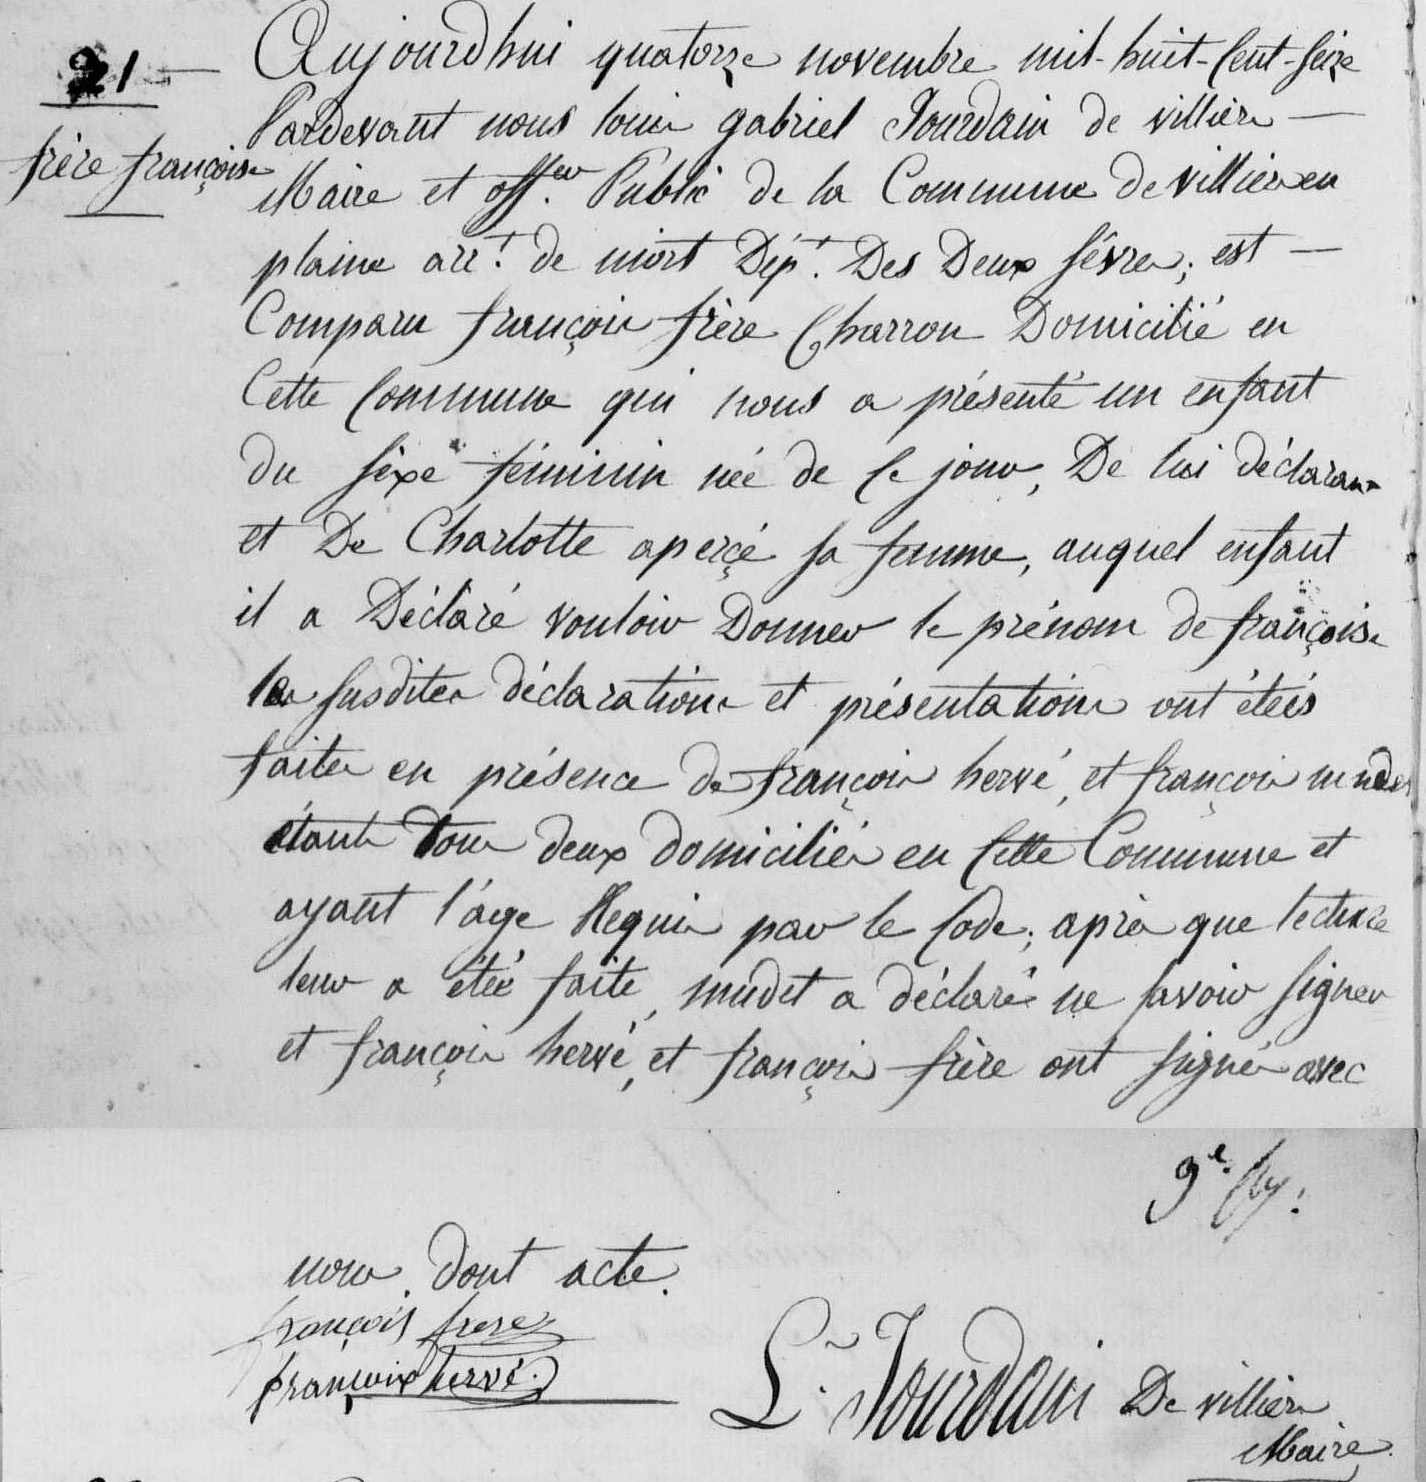 21
frère françoise
Aujourdhui quatorze novembre mil-huit-Cent-Seize
Pardevant nous louis gabriel Jourdain de villiers
Maire et off.er Public de la Commune de villiers en
plaine arr.t de niort Dép.t Des Deux sévres; est
Comparu françois frère Charron Domicilié en
Cette Commune qui nous a présenté un enfant
du sèxe féminin née de Ce jour, De lui déclarant
et De Charlotte aperçé sa femme, auquel enfant
il a Déclaré vouloir Donner le prénom de françoise
les susdites déclarations et présentations ont étéés
faites en présence de françois hervé, et françois
étants tous deux domiciliés en Cette Commune et
ayant l'âge Requis par le Code; après que lecture
leur a étéé faite, mudet a déclaré ne savoir signer
et françois hervé, et françois frère ont signés avec
9e
nous. Dont acte.
françois frere
françoix hervé.
L. Jourdain De villiers
Maire.